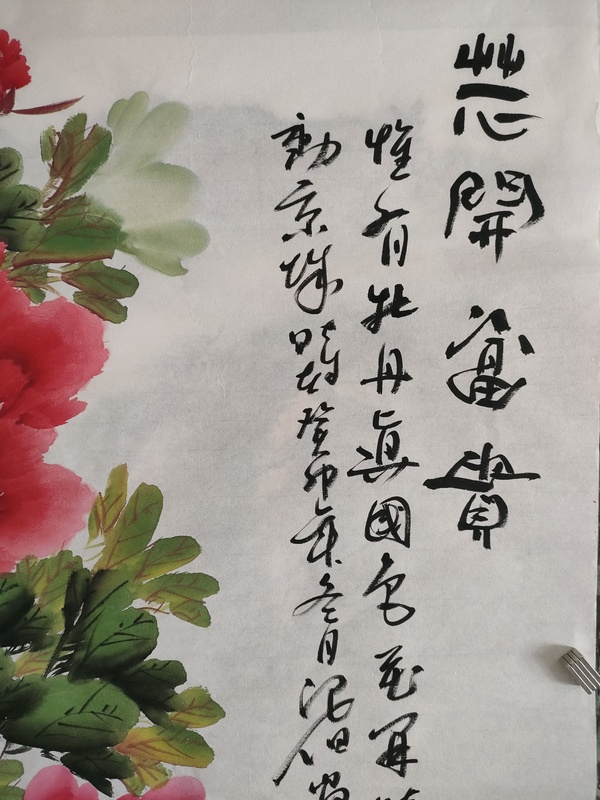 花開富貴
惟有牡丹真國色花開時
動京城時在癸卯年冬月